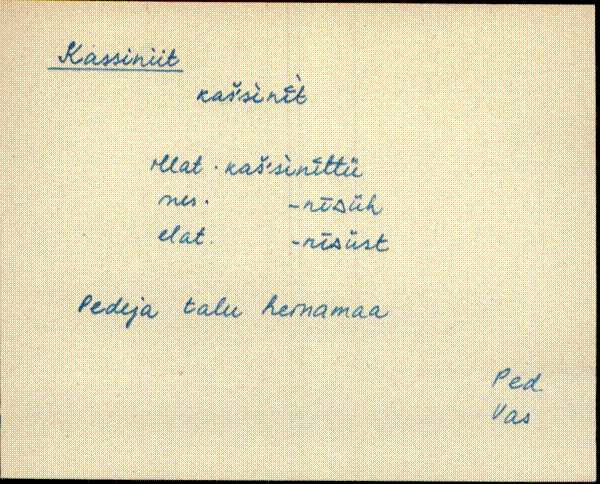 Kassiniit
kaš́sinīt̀
illat. kaš́sinīttü
ines. -nīsüh
elat. -nīsüst
Pedeja talu heinamaa
Ped
Vas